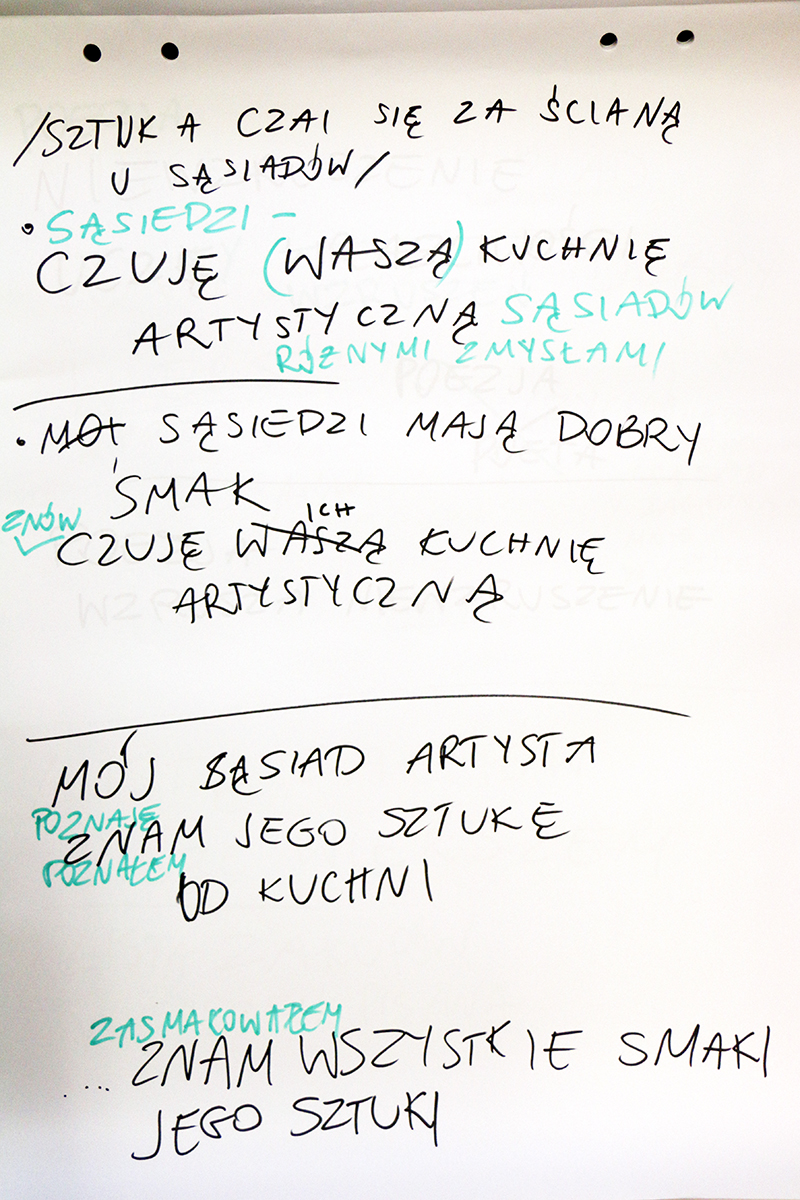 /SZTUKA CZAI SIĘ ZA ŚCIANĄ
U SĄSIADÓW/
• SĄSIEDZI –
CZUJĘ (WASZĄ) KUCHNIĘ
ARTYSTYCZNĄ SĄSIADÓW
RÓŻNYMI ZMYSŁAMI
• SĄSIEDZI MAJĄ DOBRY
SMAK
ICH
ZNÓW
CZUJĘ WASZĄ KUCHNIĘ
ARTYSTYCZNĄ
MÓJ SĄSIAD ARTYSTA
POZNAJĘ
ZNAM JEGO SZTUKĘ
POZNAŁEM
OD KUCHNI
ZASMAKOWAŁEM
... ZNAM WSZYSTKIE SMAKI
JEGO SZTUKI